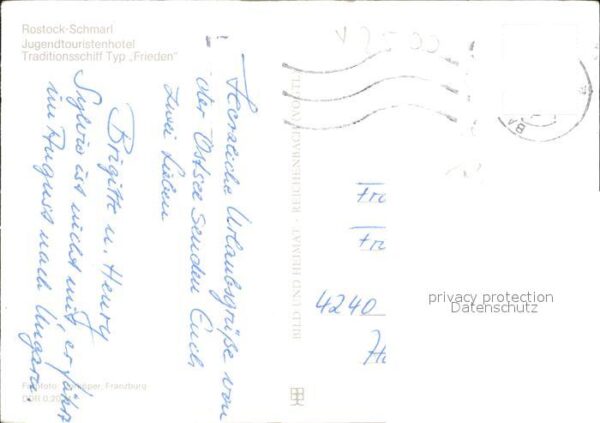 Rostock-Schmarl
Jugendtouristenhotel
Traditionsschiff Typ „Frieden"
Herzliche Urlaubsgrüße von
der Ostsee senden Euch
zwei Lieben
Brigitte u. Henry
Sylvio ist nicht mit, er fährt
im August nach Ungarn.
BILD UND HEIMAT REICHENBACH
Franzburg
DDR
4240
privacy protection
Datenschutz